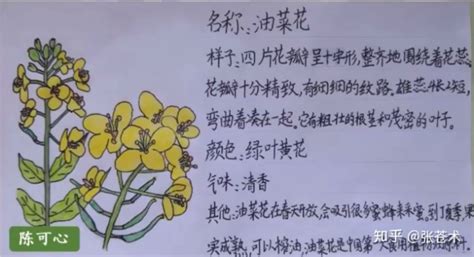 名称:油菜花
样子:四片花瓣呈十字形,整齐地围绕着花蕊,
花瓣十分精致,有细细的纹路。雄蕊4长2短,
弯曲着凑在一起。它有粗壮的根茎和茂密的叶子。
颜色:绿叶黄花
气味:清香
其他:油菜花在春天开放,会吸引很多蜜蜂来采蜜,到了夏季果
实成熟,可以榨油,油菜是中国第一大食用植物油原料。
陈可心
知乎 @张苍术